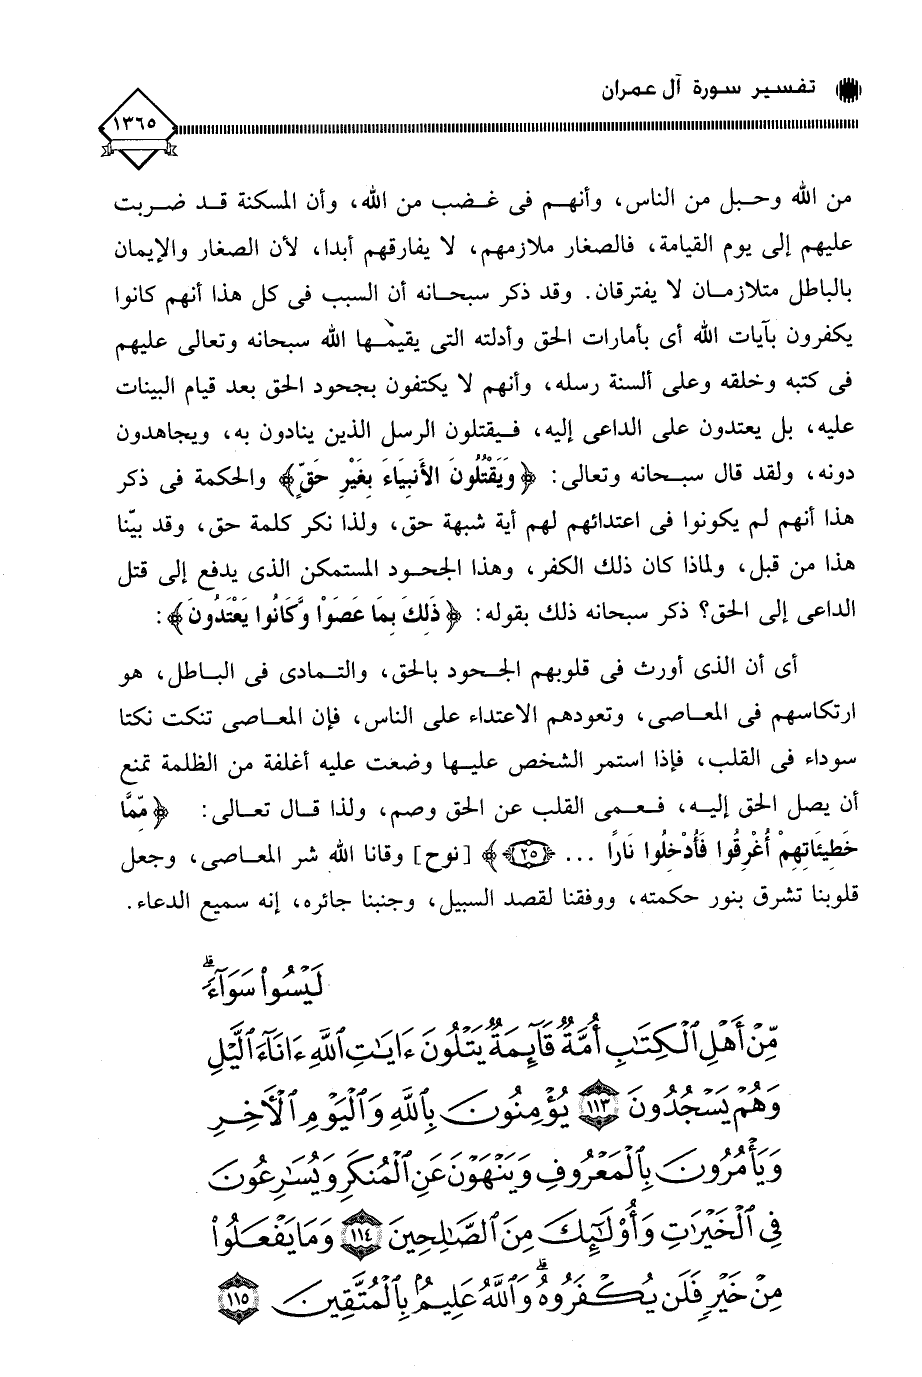 تفسير سورة آل عمران
١٣٦٥
من الله وحبل من الناس، وأنهم فى غضب من الله، وأن المسكنة قد ضربت
عليهم إلى يوم القيامة، فالصغار ملازمهم، لا يفارقهم أبدا، لأن الصغار والإيمان
بالباطل متلازمان لا يفترقان. وقد ذكر سبحانه أن السبب فى كل هذا أنهم كانوا
يكفرون بآيات الله أى بأمارات الحق وأدلته التى يقيمها الله سبحانه وتعالى عليهم
فى كتبه وخلقه وعلى ألسنة رسله، وأنهم لا يكتفون بجحود الحق بعد قيام البينات
عليه، بل يعتدون على الداعى إليه، فيقتلون الرسل الذين ينادون به، ويجاهدون
دونه، ولقد قال سبحانه وتعالى: ﴿ وَيَقْتُلُونَ الأَنبِيَاءَ بِغَيْرِ حَقٍّ ﴾ والحكمة فى ذكر
هذا أنهم لم يكونوا فى اعتدائهم لهم أية شبهة حق، ولذا نكر كلمة حق، وقد بيّنا
هذا من قبل، ولماذا كان ذلك الكفر، وهذا الجحود المستمكن الذى يدفع إلى قتل
الداعى إلى الحق؟ ذكر سبحانه ذلك بقوله: ﴿ ذَلِكَ بِمَا عَصَوْا وَّكَانُوا يَعْتَدُونَ ﴾:
أى أن الذى أورث فى قلوبهم الجحود بالحق، والتمادى فى الباطل، هو
ارتكاسهم فى المعاصى، وتعودهم الاعتداء على الناس، فإن المعاصى تنكت نكتا
سوداء فى القلب، فإذا استمر الشخص عليها وضعت عليه أغلفة من الظلمة تمنع
أن يصل الحق إليه، فعمى القلب عن الحق وصم، ولذا قال تعالى: ﴿ مِّمَّا
خَطِيئَاتِهِمْ أُغْرِقُوا فَأُدْخِلُوا نَارًا ... ﴿٢٥﴾ ﴾ [نوح] وقانا الله شر المعاصى، وجعل
قلوبنا تشرق بنور حكمته، ووفقنا لقصد السبيل، وجنبنا جائره، إنه سميع الدعاء.
لَيْسُوا۟ سَوَآءً ۗ
مِّنْ أَهْلِ ٱلْكِتَـٰبِ أُمَّةٌ قَآئِمَةٌ يَتْلُونَ ءَايَـٰتِ ٱللَّهِ ءَانَآءَ ٱلَّيْلِ
وَهُمْ يَسْجُدُونَ ﴿١١٣﴾ يُؤْمِنُونَ بِٱللَّهِ وَٱلْيَوْمِ ٱلْـَٔاخِرِ
وَيَأْمُرُونَ بِٱلْمَعْرُوفِ وَيَنْهَوْنَ عَنِ ٱلْمُنكَرِ وَيُسَـٰرِعُونَ
فِى ٱلْخَيْرَٰتِ وَأُو۟لَـٰٓئِكَ مِنَ ٱلصَّـٰلِحِينَ ﴿١١٤﴾ وَمَا يَفْعَلُوا۟
مِنْ خَيْرٍ فَلَن يُكْفَرُوهُ ۗ وَٱللَّهُ عَلِيمٌۢ بِٱلْمُتَّقِينَ ﴿١١٥﴾